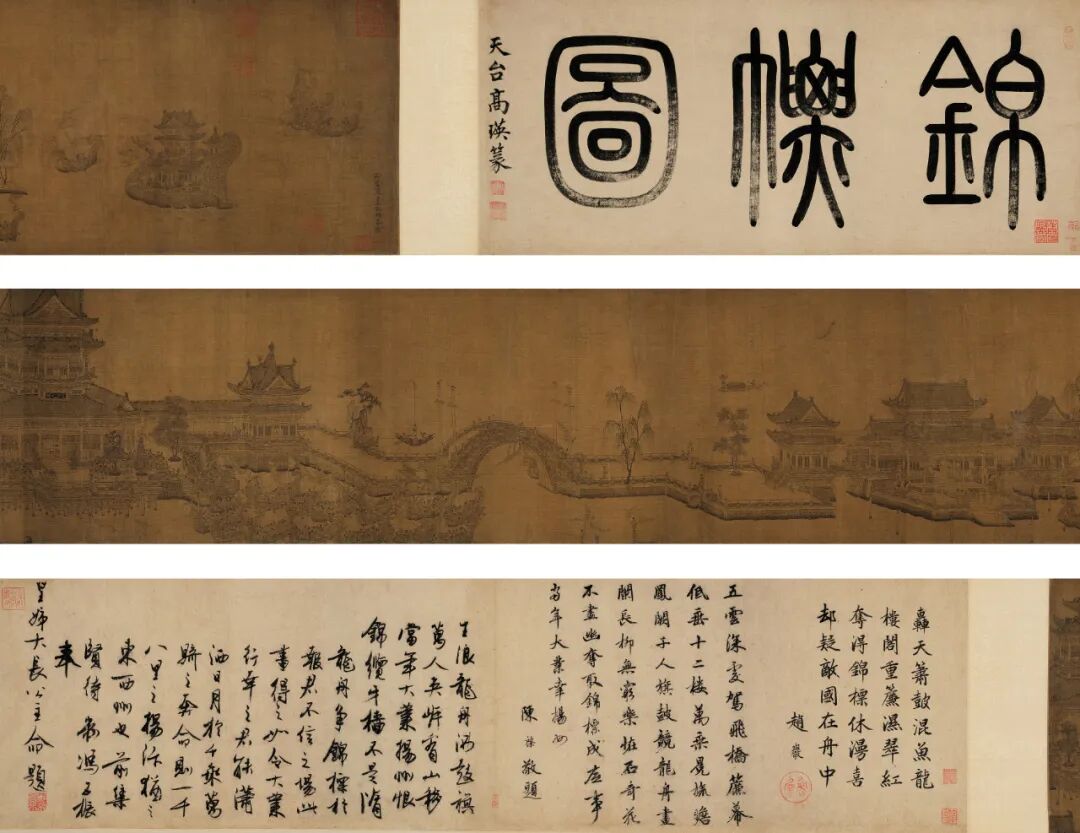 錦幖圖
天台高瑛篆
轟天簫鼓混魚龍
樓閣重簾濕翠紅
奪得錦標休漫喜
却疑敵國在舟中
趙巖
五雲深處駕飛橋簾幕
低垂十二樓萬乘冕旒瞻
鳳闕千人旗鼓競龍舟畫
闌長柳無窮樂恠石奇花
不盡幽奪取錦標成底事
當年大業幸揚州
陳 敬題
龍舟鼓旗
萬人有山移
當年大業揚州恨
錦纜牙檣不是隋
龍舟爭錦標於
報君不信之場此
畫得之如令大業
行幸之君能瀟
洒日月於千乘萬
騎之奔命則一千
八里之揚汴猶之
東西州也前集
賢待制馮子振
奉
皇姊大長公主命題